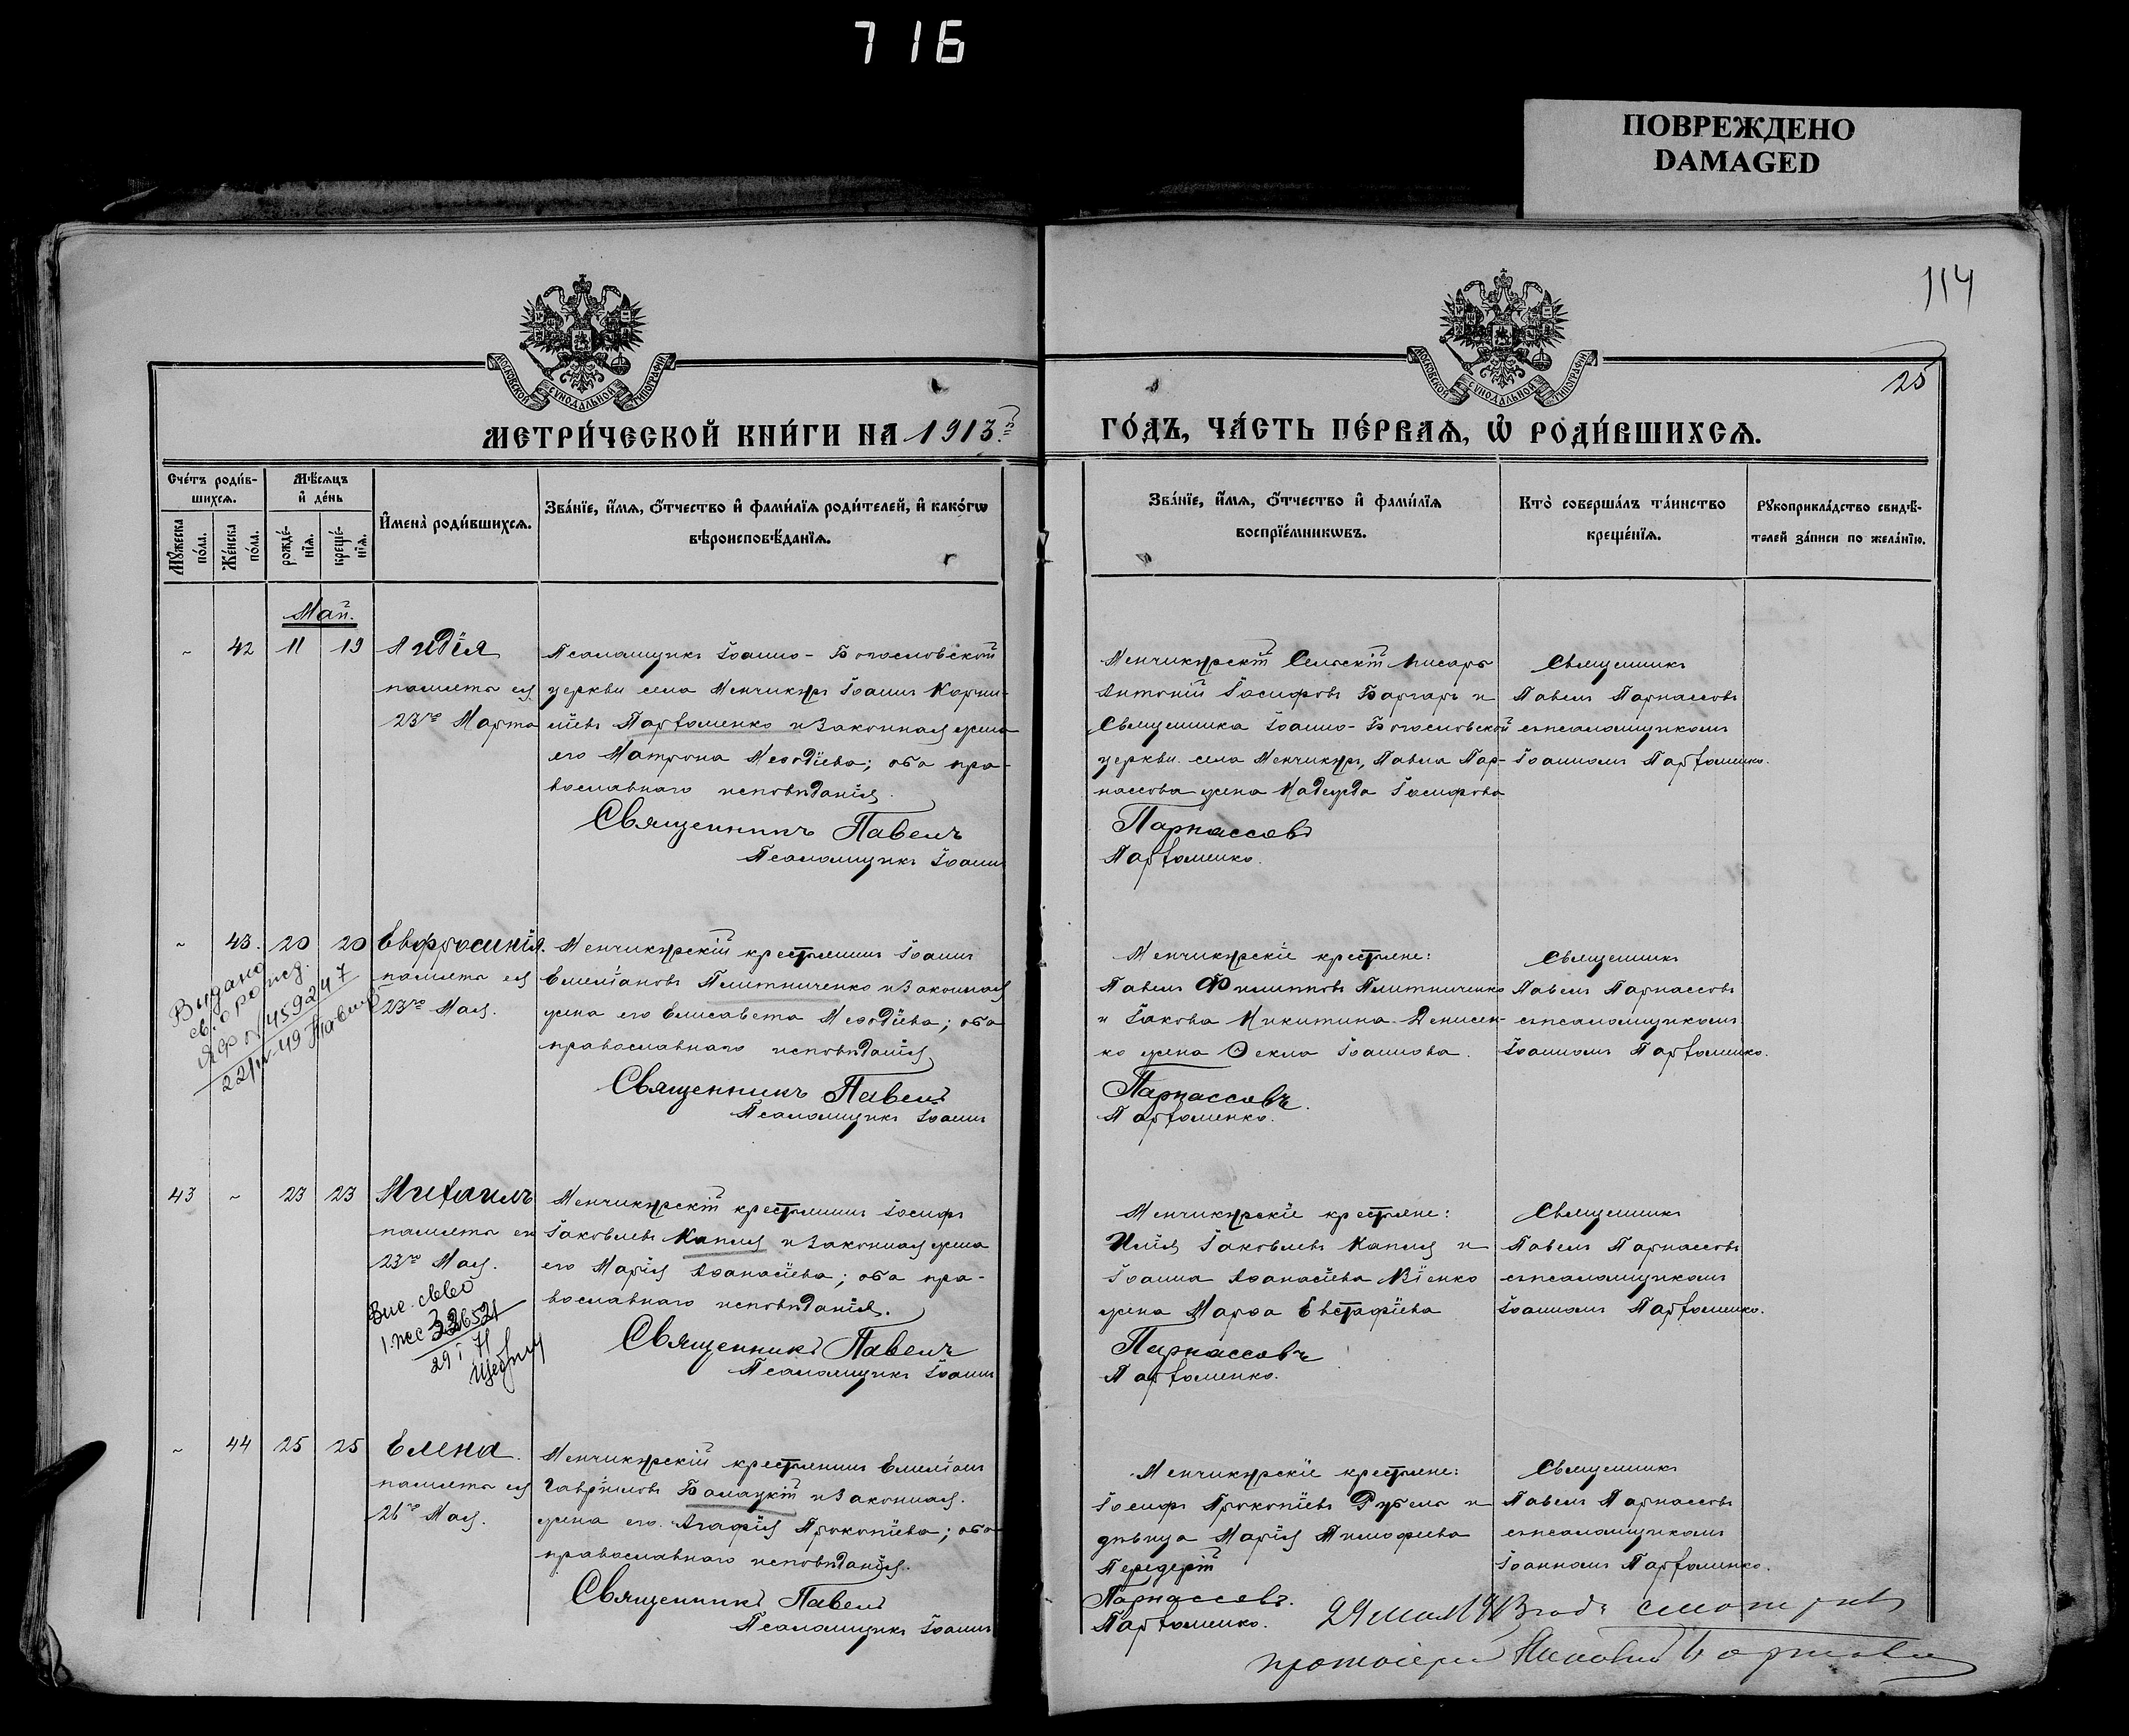 716
ПОВРЕЖДЕНО
DAMAGED
114
25
МОСКОВСКОЙ СУНОДАЛЬНОЙ ТИПОГРАФІИ
МОСКОВСКОЙ СУНОДАЛЬНОЙ ТИПОГРАФІИ
МЕТРИ́ЧЕСКОЙ КНИ́ГИ НА 1913й
ГО́ДЪ, ЧА́СТЬ ПЕ́РВАѦ, Ѡ РОДИ́ВШИХСѦ.
Сче́тъ роди́в-
шихсѧ.
Мѣ́сѧцъ
и҆ де́нь
Мꙋжеска
по́ла.
Же́нска
по́ла.
рожде́-
нїѧ.
креще́-
нїѧ.
И҆мена̀ роди́вшихсѧ.
Зва́нїе, и҆́мѧ, ѻ҆́тчество и҆ фами́лїѧ роди́телей, и҆ како́гѡ
вѣроисповѣ́данїѧ.
Зва́нїе, и҆́мѧ, ѻ҆́тчество и҆ фами́лїѧ
воспрїе́мникѡвъ.
Кто̀ соверша́лъ та́инство
креще́нїѧ.
Рꙋкоприкла́дство свидѣ́-
телей за́писи по жела́нїю.
Май.
~ 42 11 19 Лидія
память ея
23го Марта
Псаломщикъ Іоанно-Богословской
церкви села Менчикуръ Іоаннъ Корни-
ліевъ Парѳоменко и законная жена
его Матрона Меѳодіева; оба пра-
вославнаго исповѣданія.
Священникъ Павелъ
Псаломщикъ Іоаннъ
Менчикурскій Сельскій писарь
Антоній Іосифовъ Баргаръ и
Священника Іоанно-Богословской
церкви села Менчикуръ, Павла Пар-
нассова жена Надежда Іосифова
Парнассовъ
Парѳоменко.
Священникъ
Павелъ Парнассовъ
съ псаломщикомъ
Іоанномъ Парѳоменко.
~ 43. 20 20 Евфросинія.
память ея
23го Мая.
Видано
св. о рожд.
ЯФ 459247
22/IV-49
Менчикурскій крестьянинъ Іоаннъ
Емеліановъ Плитниченко и законная
жена его Елисавета Меѳодіева; оба
православнаго исповѣданія
Священникъ Павелъ
Псаломщикъ Іоаннъ
Менчикурскіе крестьяне:
Павелъ Филипповъ Плитниченко
и Іакова Никитина Денисен-
ко жена Ѳекла Іоаннова.
Парнассовъ.
Парѳоменко.
Священникъ
Павелъ Парнассовъ
съ псаломщикомъ
Іоанномъ Парѳоменко.
43 ~ 23 23 Михаилъ
память его
23го Мая.
29 I 71
Менчикурскій крестьянинъ Іосифъ
Іаковлевъ Капля и законная жена
его Марія Аѳанасіева; оба пра-
вославнаго исповѣданія.
Священникъ Павелъ
Псаломщикъ Іоаннъ
Менчикурскіе крестьяне:
Илія Іаковлевъ Капля и
Іоанна Аѳанасіева Кіенко
жена Марѳа Евстафіева
Парнассовъ
Парѳоменко.
Священникъ
Павелъ Парнассовъ
съ псаломщикомъ
Іоанномъ Парѳоменко.
~ 44 25 25 Елена.
память ея
26го Мая.
Менчикурскій крестьянинъ Емеліанъ
Гавріиловъ Балацкій и законная
жена его Агафія Прокопіева; оба
православнаго исповѣданія.
Священникъ Павелъ
Псаломщикъ Іоаннъ
Менчикурскіе крестьяне:
Іосифъ Прокопіевъ Рубель и
дѣвица Марія Тимофеева
Передерій
Парнассовъ.
Парѳоменко.
Священникъ
Павелъ Парнассовъ
съ псаломщикомъ
Іоанномъ Парѳоменко.
29 мая 1913 года смотрѣлъ
протоіерей